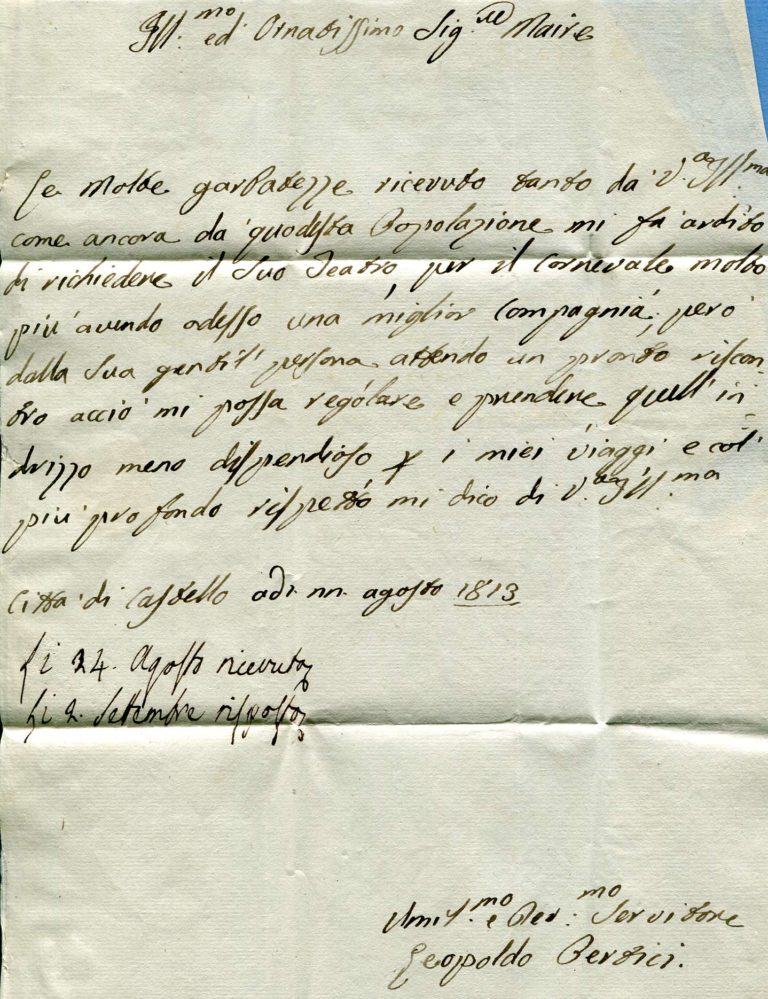 Ill.mo ed Ornatissimo Sig.re Maire
Le Molte garbatezze ricevuto tanto da V.a Ill.ma
come ancora da quodesta Popolazione mi fa' ardito
di richiedere il Suo Teatro, per il Cornevale molto
piu' avendo adesso una miglior Compagnia', pero'
dalla Sua gentil' persona attendo un pronto riscon-
tro accio' mi possa regolare e prendere quell' in-
drizzo meno dispendioso p i miei viaggi e col'
piu' profondo rispetto mi dico di V.a Ill.ma
Citta' di Castello adi agosto 1813
Li 24. Agosto ricevuta
Li 2. Settembre risposta
Umil.mo e Dev.mo Servitore
Leopoldo Pertici.